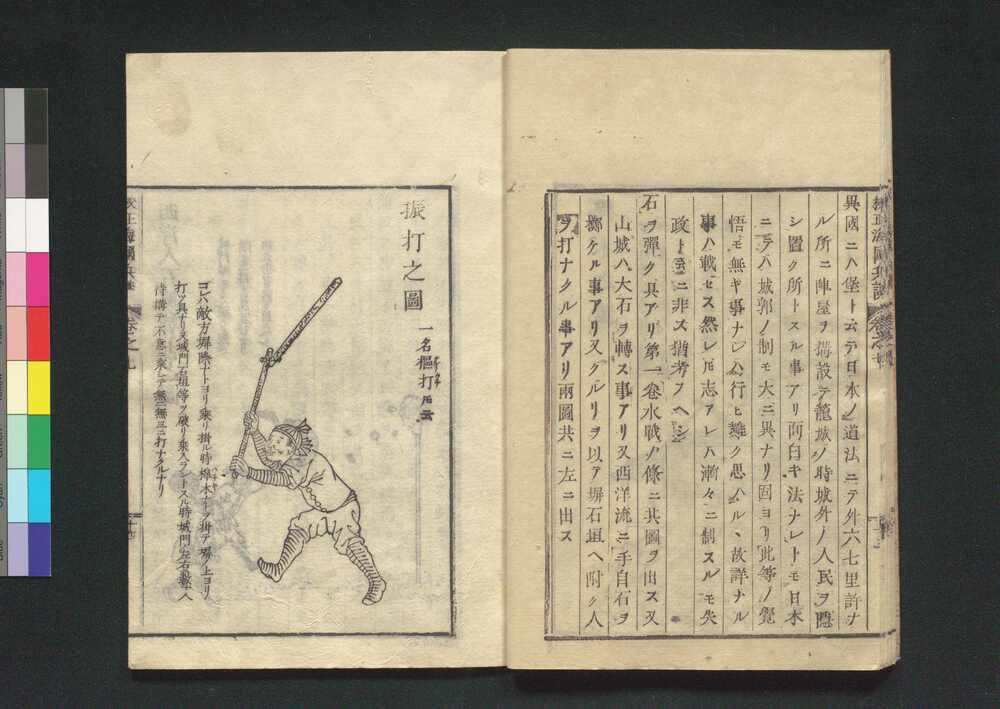 異國ニハ堡ト云テ日本ノ道法ニテ外六七里許ナ
ル所ニ陣屋ヲ搆設テ籠城ノ時城外ノ人民ヲ隱
シ置ク所トスル事アリ面白キ法ナレトモ日本
ニテハ城郭ノ制モ大ニ異ナリ固ヨリ此等ノ覺
悟モ無キ事ナレハ行ヒ難ク思ハルヽ故詳ナル
事ハ載セス然レ𪜈志アレハ漸々ニ制スルモ失
政トニ非ス猶考フヘシ
石ヲ彈ク具アリ第一卷水戰ノ條ニ其圖ヲ出ス又
山城ハ大石ヲ轉ス事アリ又西洋流ニ手自石ヲ
擲ケル事アリ又クルリヲ以テ塀石垣ヘ附ク人
ヲ打ナクル事アリ兩圖共ニ左ニ出ス
振打之圖
一名樞打𪜈云
コレハ敵方塀際ナトヨリ乘リ掛ル時埠木ナトヲ掛テ塀ノ上ヨリ
打ツ具ナリ又城門石垣等ヲ破リ乘入ヲントスル時城門ノ左右數十人
待搆テ不意ニ乘シテ無二無三ニ打ナクルナリ